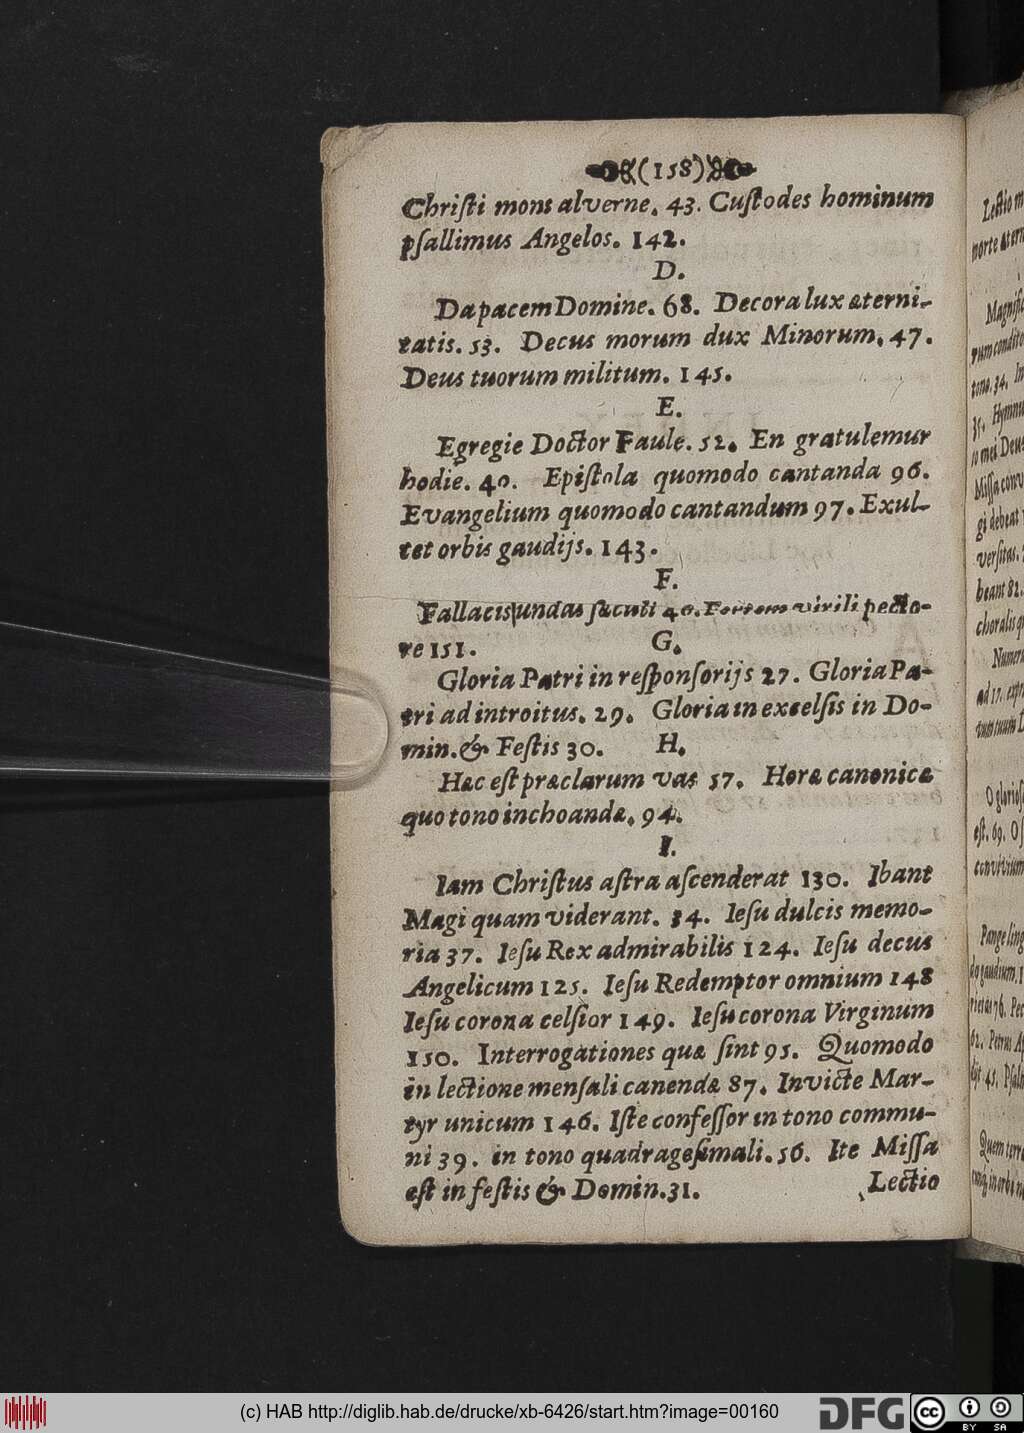 (158)
Chriſti mons alverne. 43. Cuſtodes hominum
pſallimus Angelos. 142.
D.
Da pacem Domine. 68. Decora lux æterni-
tatis. 53. Decus morum dux Minorum. 47.
Deus tuorum militum. 145.
E.
Egregie Doctor Paule. 52. En gratulemur
hodie. 40. Epiſtola quomodo cantanda 96.
Evangelium quomodo cantandum 97. Exul-
tet orbis gaudijs. 143.
F.
Fallacis undas ſæculi 40. Fortem virili pecto-
re 151. G.
Gloria Patri in reſponſorijs 27. Gloria Pa-
tri ad introitus. 29. Gloria in excelſis in Do-
min. & Feſtis 30. H.
Hæc eſt præclarum vas 57. Horæ canonicæ
quo tono inchoandæ. 94.
I.
Iam Chriſtus aſtra aſcenderat 130. Ibant
Magi quam viderant. 34. Ieſu dulcis memo-
ria 37. Ieſu Rex admirabilis 124. Ieſu decus
Angelicum 125. Ieſu Redemptor omnium 148
Ieſu corona celſior 149. Ieſu corona Virginum
150. Interrogationes quæ ſint 95. Quomodo
in lectione menſali canendæ 87. Invicte Mar-
tyr unicum 146. Iſte confeſſor in tono commu-
ni 39. in tono quadrageſimali. 56. Ite Miſſa
eſt in feſtis & Domin. 31. Lectio
Lectio m
morte ætern
Magnific
rum condito
tono. 34. In
35. Hymnu
Miſſa conv
gi debeat
verſitas.
beant 82.
choralis q
Numer
ad 17. expr
O glorioſ
eſt. 69. O ſ
convivium
Pange ling
do gaudium.
62. Petrus Ap
Quem terra
(c) HAB http://diglib.hab.de/drucke/xb-6426/start.htm?image=00160
DFG
cc
BY SA